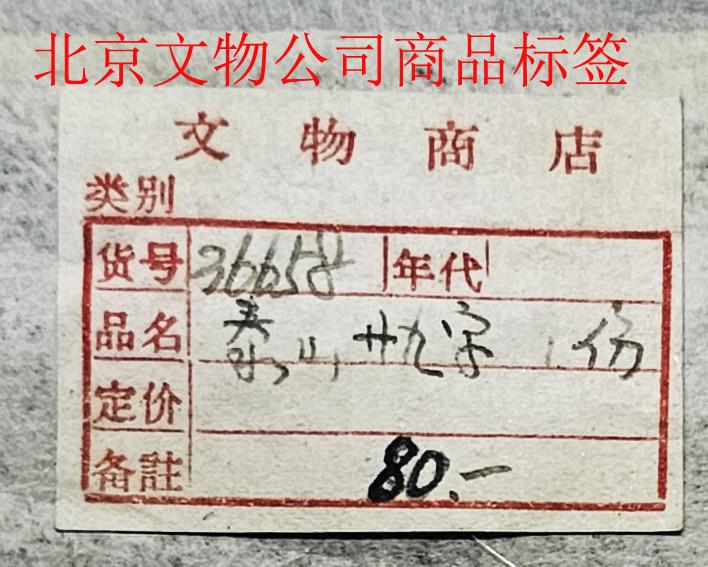 北京文物公司商品标签
文物商店
类别
货号 36658 年代
品名 泰山廿九字 1份
定价
备註 80.-